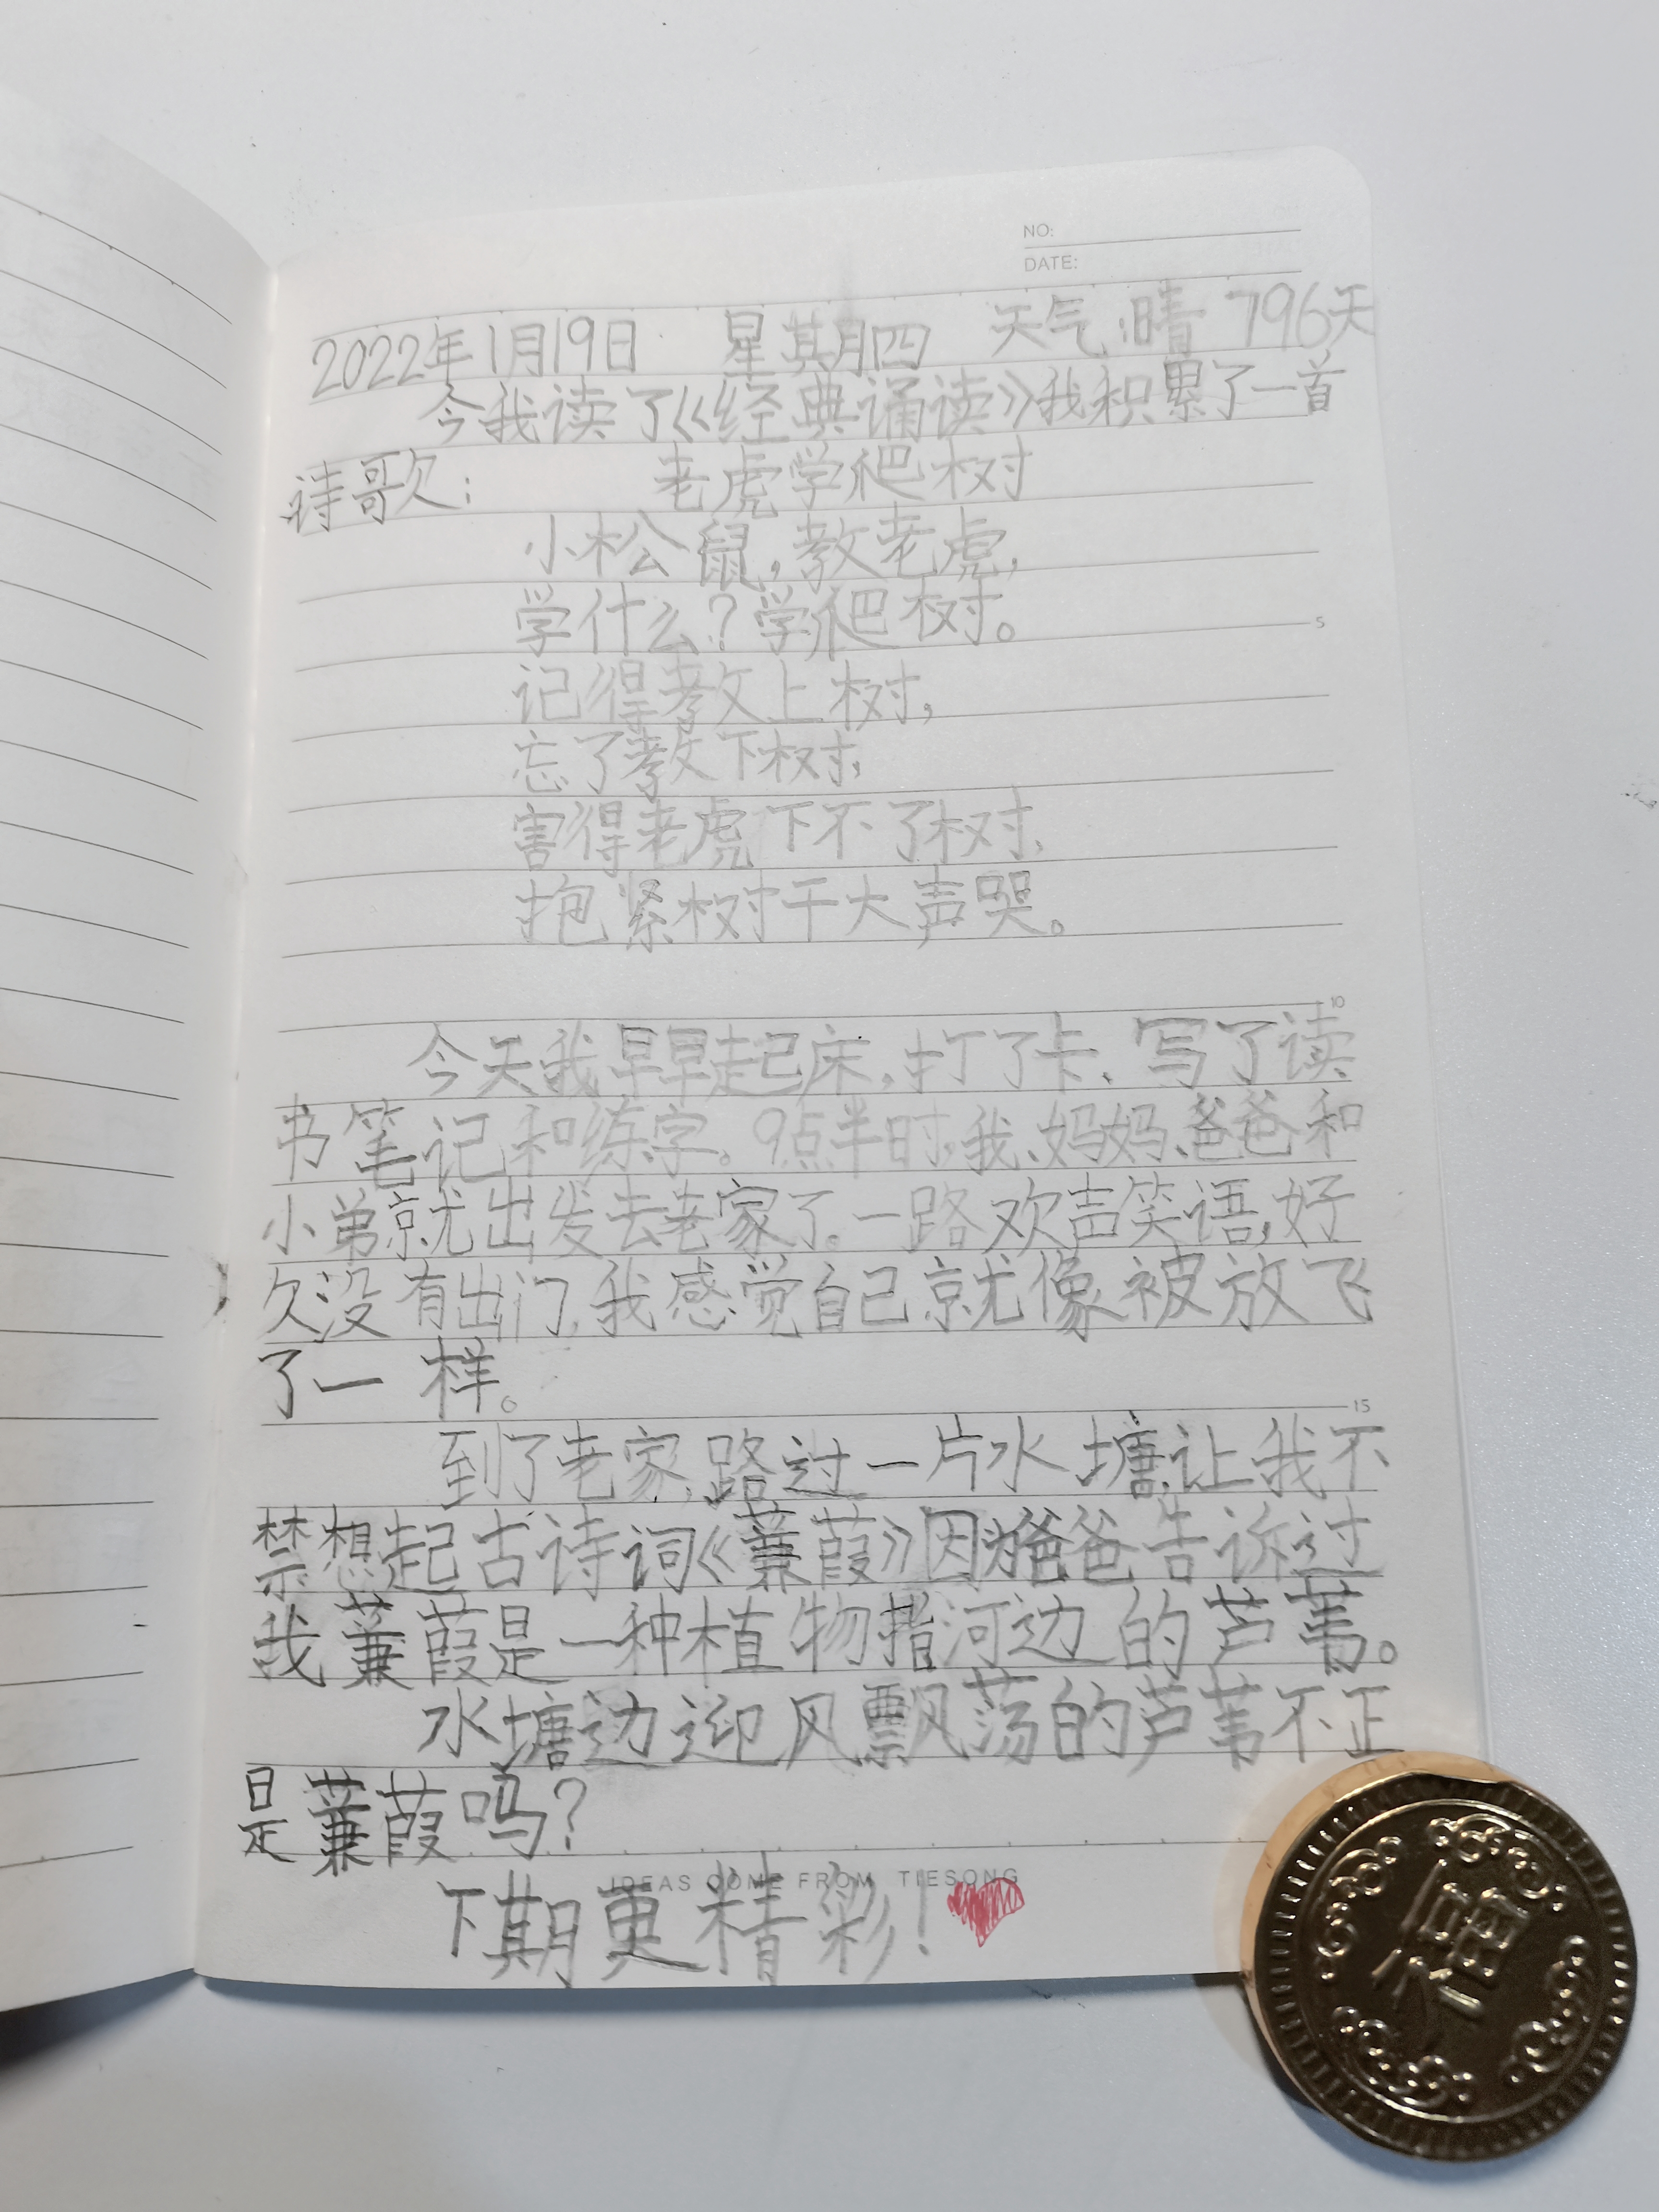 NO:
DATE:
2022年1月19日 星其月四 天气:晴 796天
今我读了《经典诵读》我积累了一首
诗歌: 老虎学爬树
小松鼠,教老虎,
学什么?学爬树。
记得教上树,
忘了教下树,
害得老虎下不了树,
抱紧树干大声哭。
今天我早早起床,打了卡、写了读
书笔记和练字。9点半时,我、妈妈、爸爸和
小弟就出发去老家了。一路欢声笑语,好
久没有出门,我感觉自己就像被放飞
了一样。
到了老家,路过一片水塘,让我不
禁想起古诗词《蒹葭》因为爸爸告诉过
我蒹葭是一种植物指河边的芦苇。
水塘边迎风飘荡的芦苇不正
是蒹葭吗?
IDEAS COME FROM TIESONG
下期更精彩!
5
10
15
福